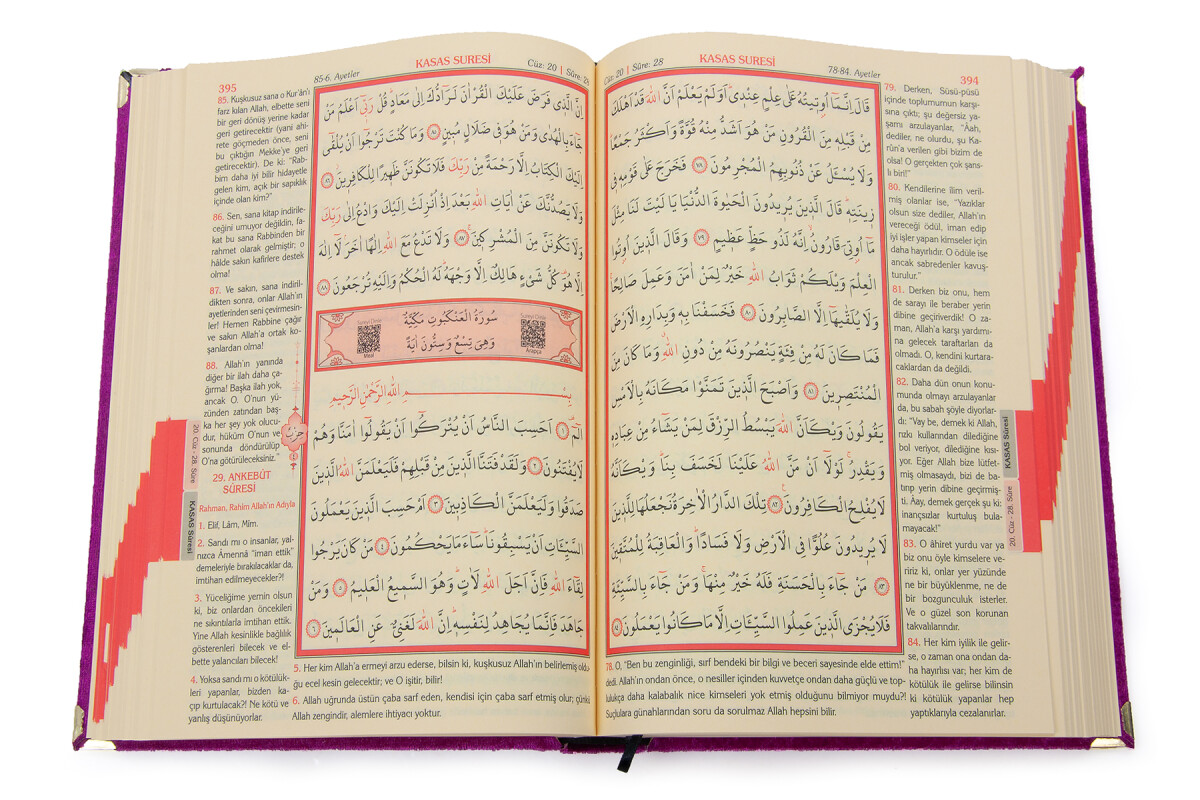 78-84. Ayetler
KASAS SURESİ
Cüz: 20 | Sûre: 28
394
قَالَ اِنَّمَٓا اُو۫ت۪يتُهُ عَلٰى عِلْمٍ عِنْد۪يۜ اَوَلَمْ يَعْلَمْ اَنَّ اللّٰهَ قَدْ اَهْلَكَ
مِنْ قَبْلِه۪ مِنَ الْقُرُونِ مَنْ هُوَ اَشَدُّ مِنْهُ قُوَّةً وَاَكْثَرُ جَمْعًاۜ
وَلَا يُسْـَٔلُ عَنْ ذُنُوبِهِمُ الْمُجْرِمُونَ ﴿٧٨﴾ فَخَرَجَ عَلٰى قَوْمِه۪ ف۪ي
ز۪ينَتِه۪ۜ قَالَ الَّذ۪ينَ يُر۪يدُونَ الْحَيٰوةَ الدُّنْيَا يَا لَيْتَ لَنَا مِثْلَ
مَٓا اُو۫تِيَ قَارُونُۙ اِنَّهُ لَذُو حَظٍّ عَظ۪يمٍ ﴿٧٩﴾ وَقَالَ الَّذ۪ينَ اُو۫تُوا
الْعِلْمَ وَيْلَكُمْ ثَوَابُ اللّٰهِ خَيْرٌ لِمَنْ اٰمَنَ وَعَمِلَ صَالِحًاۚ
وَلَا يُلَقّٰيهَٓا اِلَّا الصَّابِرُونَ ﴿٨٠﴾ فَخَسَفْنَا بِه۪ وَبِدَارِهِ الْاَرْضَ
فَمَا كَانَ لَهُ مِنْ فِئَةٍ يَنْصُرُونَهُ مِنْ دُونِ اللّٰهِۗ وَمَا كَانَ مِنَ
الْمُنْتَصِر۪ينَ ﴿٨١﴾ وَاَصْبَحَ الَّذ۪ينَ تَمَنَّوْا مَكَانَهُ بِالْاَمْسِ
يَقُولُونَ وَيْكَاَنَّ اللّٰهَ يَبْسُطُ الرِّزْقَ لِمَنْ يَشَٓاءُ مِنْ عِبَادِه۪
وَيَقْدِرُۚ لَوْلَٓا اَنْ مَنَّ اللّٰهُ عَلَيْنَا لَخَسَفَ بِنَاۜ وَيْكَاَنَّهُ
لَا يُفْلِحُ الْكَافِرُونَ ﴿٨٢﴾ تِلْكَ الدَّارُ الْاٰخِرَةُ نَجْعَلُهَا لِلَّذ۪ينَ
لَا يُر۪يدُونَ عُلُوًّا فِي الْاَرْضِ وَلَا فَسَادًاۜ وَالْعَاقِبَةُ لِلْمُتَّق۪ينَ
﴿٨٣﴾ مَنْ جَٓاءَ بِالْحَسَنَةِ فَلَهُ خَيْرٌ مِنْهَاۚ وَمَنْ جَٓاءَ بِالسَّيِّئَةِ
فَلَا يُجْزَى الَّذ۪ينَ عَمِلُوا السَّيِّـَٔاتِ اِلَّا مَا كَانُوا يَعْمَلُونَ ﴿٨٤﴾
78. O, "Ben bu zenginliği, sırf bendeki bir bilgi ve beceri sayesinde elde ettim!"
dedi. Allah'ın ondan önce, o nesiller içinden kuvvetçe ondan daha güçlü ve top-
lulukça daha kalabalık nice kimseleri yok etmiş olduğunu bilmiyor muydu?!
Suçlulara günahlarından soru da sorulmaz Allah hepsini bilir.
79. Derken, Süsü-püsü
içinde toplumunun karşı-
sına çıktı; şu değersiz ya-
şamı arzulayanlar, "Âah,
dediler, ne olurdu, şu Ka-
rûn'a verilen gibi bizim de
olsa! O gerçekten çok şans-
lı biri!"
80. Kendilerine ilim veril-
miş olanlar ise, "Yazıklar
olsun size dediler, Allah'ın
vereceği ödül, iman edip
iyi işler yapan kimseler için
daha hayırlıdır. O ödüle ise
ancak sabredenler kavuş-
turulur."
81. Derken biz onu, hem
de sarayı ile beraber yerin
dibine geçiriverdik! O za-
man, Allah'a karşı yardımı-
na gelecek taraftarları da
olmadı. O, kendini kurtara-
caklardan da değildi.
82. Daha dün onun konu-
munda olmayı arzulayanlar
da, bu sabah şöyle diyorlar-
dı: "Vay be, demek ki Allah,
rızkı kullarından dilediğine
bol veriyor, dilediğine kısı-
yor. Eğer Allah bize lütfet-
miş olmasaydı, bizi de ba-
tırıp yerin dibine geçirmiş-
ti. Âay, demek gerçek şu ki:
inançsızlar kurtuluş bulama-
mayacak!"
83. O âhiret yurdu var ya
biz onu öyle kimselere ve-
ririz ki, onlar yer yüzünde
ne bir büyüklenme, ne de
bir bozgunculuk isterler.
Ve o güzel son korunan
takvalılarındır.
84. Her kim iyilik ile gelir-
se, o zaman ona ondan da-
ha hayırlısı var; her kim de
kötülük ile gelirse bilinsin
ki kötülük yapanlar hep
yaptıklarıyla cezalanırlar.
KASAS Sûresi
20. Cüz - 28. Sûre
395
85-6. Ayetler
KASAS SURESİ
Cüz: 20 | Sûre: 28
اِنَّ الَّذ۪ي فَرَضَ عَلَيْكَ الْقُرْاٰنَ لَرَٓادُّكَ اِلٰى مَعَادٍۜ قُلْ رَبّ۪ٓي اَعْلَمُ مَنْ
جَٓاءَ بِالْهُدٰى وَمَنْ هُوَ ف۪ي ضَلَالٍ مُب۪ينٍ ﴿٨٥﴾ وَمَا كُنْتَ تَرْجُٓوا اَنْ يُلْقٰٓى
اِلَيْكَ الْكِتَابُ اِلَّا رَحْمَةً مِنْ رَبِّكَ فَلَا تَكُونَنَّ ظَه۪يرًا لِلْكَافِر۪ينَۘ ﴿٨٦﴾
وَلَا يَصُدُّنَّكَ عَنْ اٰيَاتِ اللّٰهِ بَعْدَ اِذْ اُنْزِلَتْ اِلَيْكَ وَادْعُ اِلٰى رَبِّكَ
وَلَا تَكُونَنَّ مِنَ الْمُشْرِك۪ينَۚ ﴿٨٧﴾ وَلَا تَدْعُ مَعَ اللّٰهِ اِلٰهًا اٰخَرَۢ لَٓا اِلٰهَ
اِلَّا هُوَ۠ كُلُّ شَيْءٍ هَالِكٌ اِلَّا وَجْهَهُۜ لَهُ الْحُكْمُ وَاِلَيْهِ تُرْجَعُونَ ﴿٨٨﴾
سُورَةُ الْعَنْكَبُوتِ مَكِّيَّةٌ
وَهِيَ تِسْعٌ وَسِتُّونَ اٰيَةً
Sureyi Dinle
Arapça
Sureyi Dinle
Meal
بِسْمِ اللّٰهِ الرَّحْمٰنِ الرَّح۪يمِ
الٓمٓۚ ﴿١﴾ اَحَسِبَ النَّاسُ اَنْ يُتْرَكُٓوا اَنْ يَقُولُٓوا اٰمَنَّا وَهُمْ
لَا يُفْتَنُونَ ﴿٢﴾ وَلَقَدْ فَتَنَّا الَّذ۪ينَ مِنْ قَبْلِهِمْ فَلَيَعْلَمَنَّ اللّٰهُ الَّذ۪ينَ
صَدَقُوا وَلَيَعْلَمَنَّ الْكَاذِب۪ينَ ﴿٣﴾ اَمْ حَسِبَ الَّذ۪ينَ يَعْمَلُونَ
السَّيِّـَٔاتِ اَنْ يَسْبِقُونَاۜ سَٓاءَ مَا يَحْكُمُونَ ﴿٤﴾ مَنْ كَانَ يَرْجُوا
لِقَٓاءَ اللّٰهِ فَاِنَّ اَجَلَ اللّٰهِ لَاٰتٍۜ وَهُوَ السَّم۪يعُ الْعَل۪يمُ ﴿٥﴾ وَمَنْ
جَاهَدَ فَاِنَّمَا يُجَاهِدُ لِنَفْسِه۪ۜ اِنَّ اللّٰهَ لَغَنِيٌّ عَنِ الْعَالَم۪ينَ ﴿٦﴾
حزب
85. Kuşkusuz sana o Kur'ân'ı
farz kılan Allah, elbette seni
bir geri dönüş yerine kadar
geri getirecektir (yani ahi-
rete göçmeden önce, seni
bu çıktığın Mekke'ye geri
getirecektir). De ki: "Rab-
bim daha iyi bilir hidayetle
gelen kim, açık bir sapıklık
içinde olan kim?"
86. Sen, sana kitap indirile-
ceğini umuyor değildin, fa-
kat bu sana Rabbinden bir
rahmet olarak gelmiştir; o
hâlde sakın kafirlere destek
olma!
87. Ve sakın, sana indiril-
dikten sonra, onlar Allah'ın
ayetlerinden seni çevirmesin-
ler! Hemen Rabbine çağır
ve sakın Allah'a ortak ko-
şanlardan olma!
88. Allah'ın yanında
diğer bir ilah daha ça-
ğırma! Başka ilah yok,
ancak O. O'nun yü-
zünden zatından baş-
ka her şey yok olucu-
dur, hüküm O'nun ve
sonunda döndürülüp
O'na götürüleceksiniz."
29. ANKEBÛT
SÛRESİ
Rahman, Rahim Allah'ın Adıyla
1. Elif, Lâm, Mîm.
2. Sandı mı o insanlar, yal-
nızca Âmennâ "iman ettik"
demeleriyle bırakılacaklar da,
imtihan edilmeyecekler?!
3. Yüceliğime yemin olsun
ki, biz onlardan öncekileri
ne sıkıntılarla imtihan ettik.
Yine Allah kesinlikle bağlılık
gösterenleri bilecek ve el-
bette yalancıları bilecek!
4. Yoksa sandı mı o kötülük-
leri yapanlar, bizden ka-
çıp kurtulacak?! Ne kötü ve
yanlış düşünüyorlar.
5. Her kim Allah'a ermeyi arzu ederse, bilsin ki, kuşkusuz Allah'ın belirlemiş oldu-
ğu ecel kesin gelecektir; ve O işitir, bilir!
6. Allah uğrunda üstün çaba sarf eden, kendisi için çaba sarf etmiş olur; çünkü
Allah zengindir, alemlere ihtiyacı yoktur.
20. Cüz - 28. Sûre
KASAS Sûresi